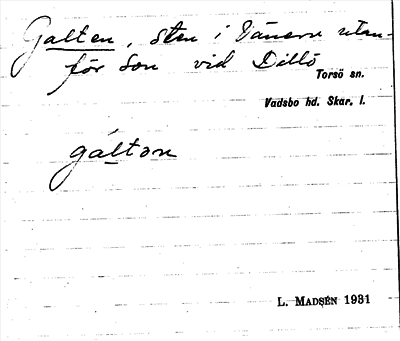 Galten, sten i Vänern utan-
för Son vid Dillö
Torsö sn.
Vadsbo hd. Skar. l.
gálton
L. MADSÉN 1931